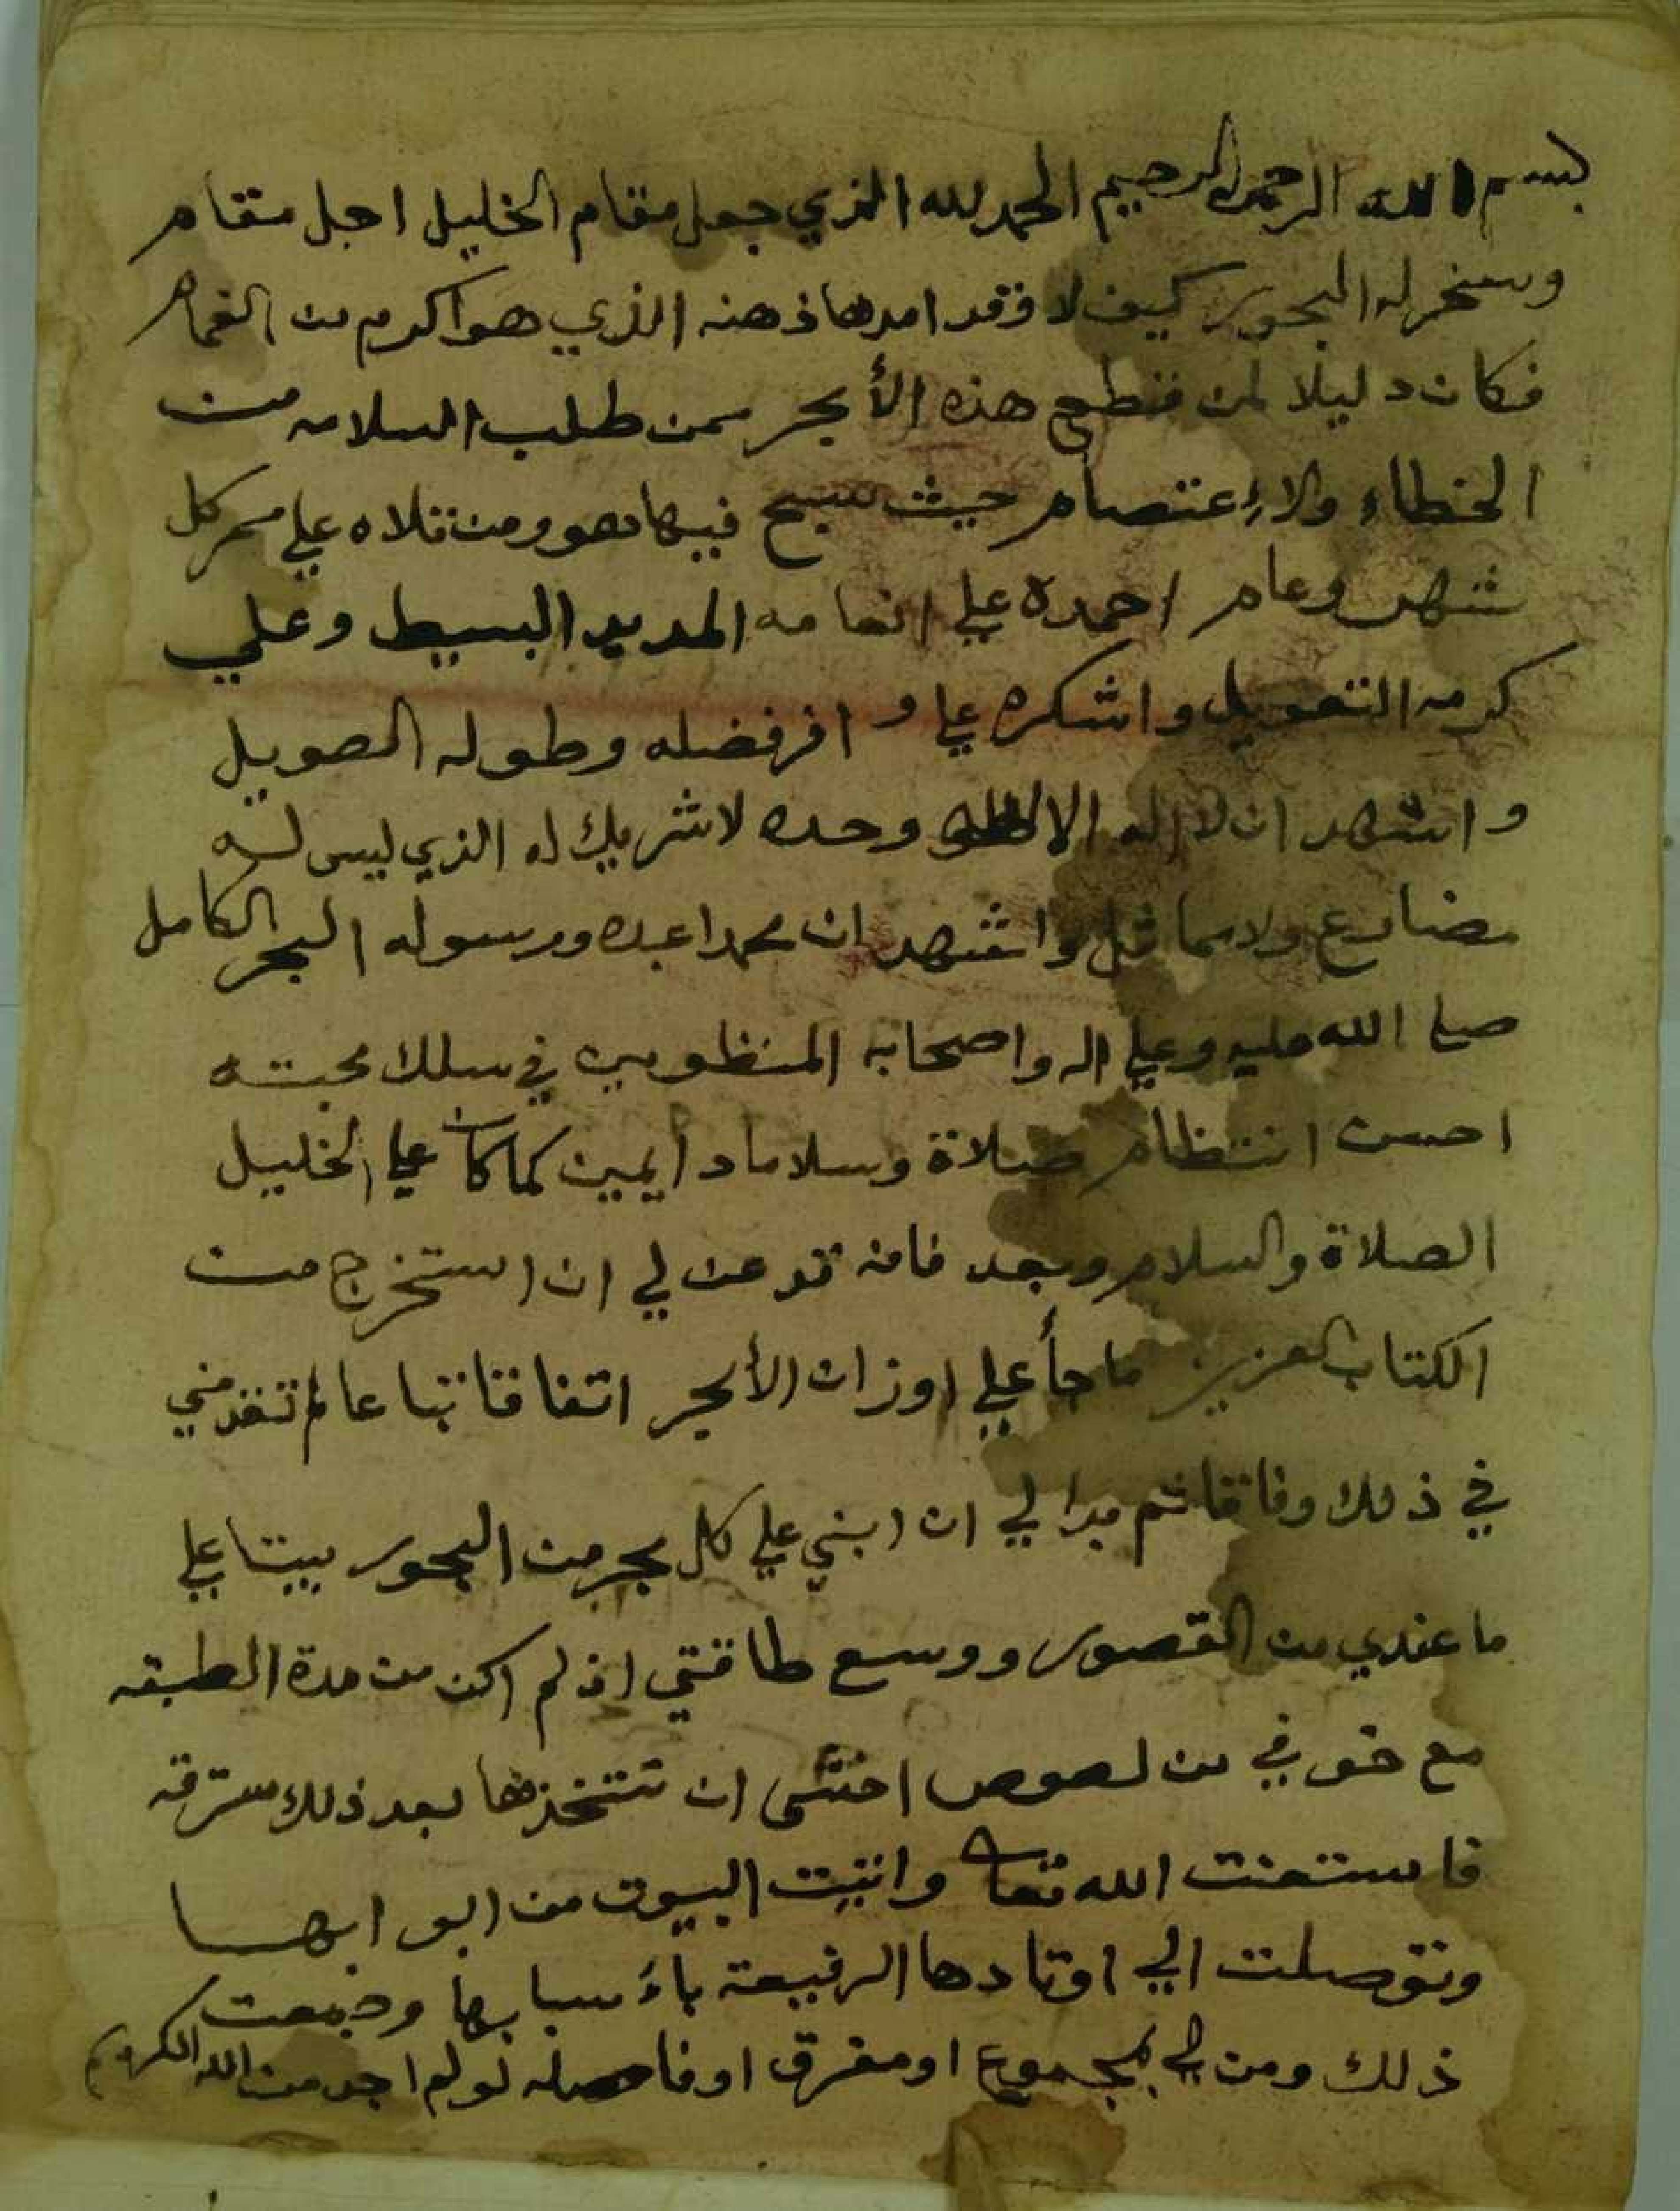 بسم الله الرحمن الرحيم الحمد لله الذي جعل مقام الخليل اجل مقام
وسخر له البحور كيف لا وقد امدها ذهنه الذي هو اكرم من الغمام
فكان دليلا لمن قطع هذه الأبحر ممن طلب السلامه من
الخطاء والاعتصام حيث سبح فيها هو ومن تلاه علي ممر كل
شهر وعام احمده علي انعامه المديد البسيط وعلي
كرمه التعويل واشكره علي وافر فضله وطوله الطويل
واشهد ان لا اله الا الله وحده لا شريك له الذي ليس له
مضارع ولا مماثل واشهد ان محمدا عبده ورسوله البحر الكامل
صلي الله عليه وعلي اله واصحابه المنظومين في سلك محبته
احسن انتظام صلاة وسلاما دايمين كما كان علي الخليل
الصلاة والسلام وبعد فانه قد عن لي ان استخرج من
الكتاب العزيز ما جأ علي اوزان الأبحر اتفاقا تباعا لم تقدمني
في ذلك وفاقا ثم بدا لي ان ابني علي كل بحر من البحور بيتا علي
ما عندي من القصور ووسع طاقتي اذ لم اكن من مدة الطبقه
مع خوفي من لصوص اخشى ان تتخذها بعد ذلك سرقه
فاستعنت الله تعالى واتيت البيوت من ابوابها
وتوصلت الي اوتادها الرفيعة بأسبابها وجمعت
ذلك ومن لي بمجموع او مفرق او فاصله لو لم اجد من الله الكريم